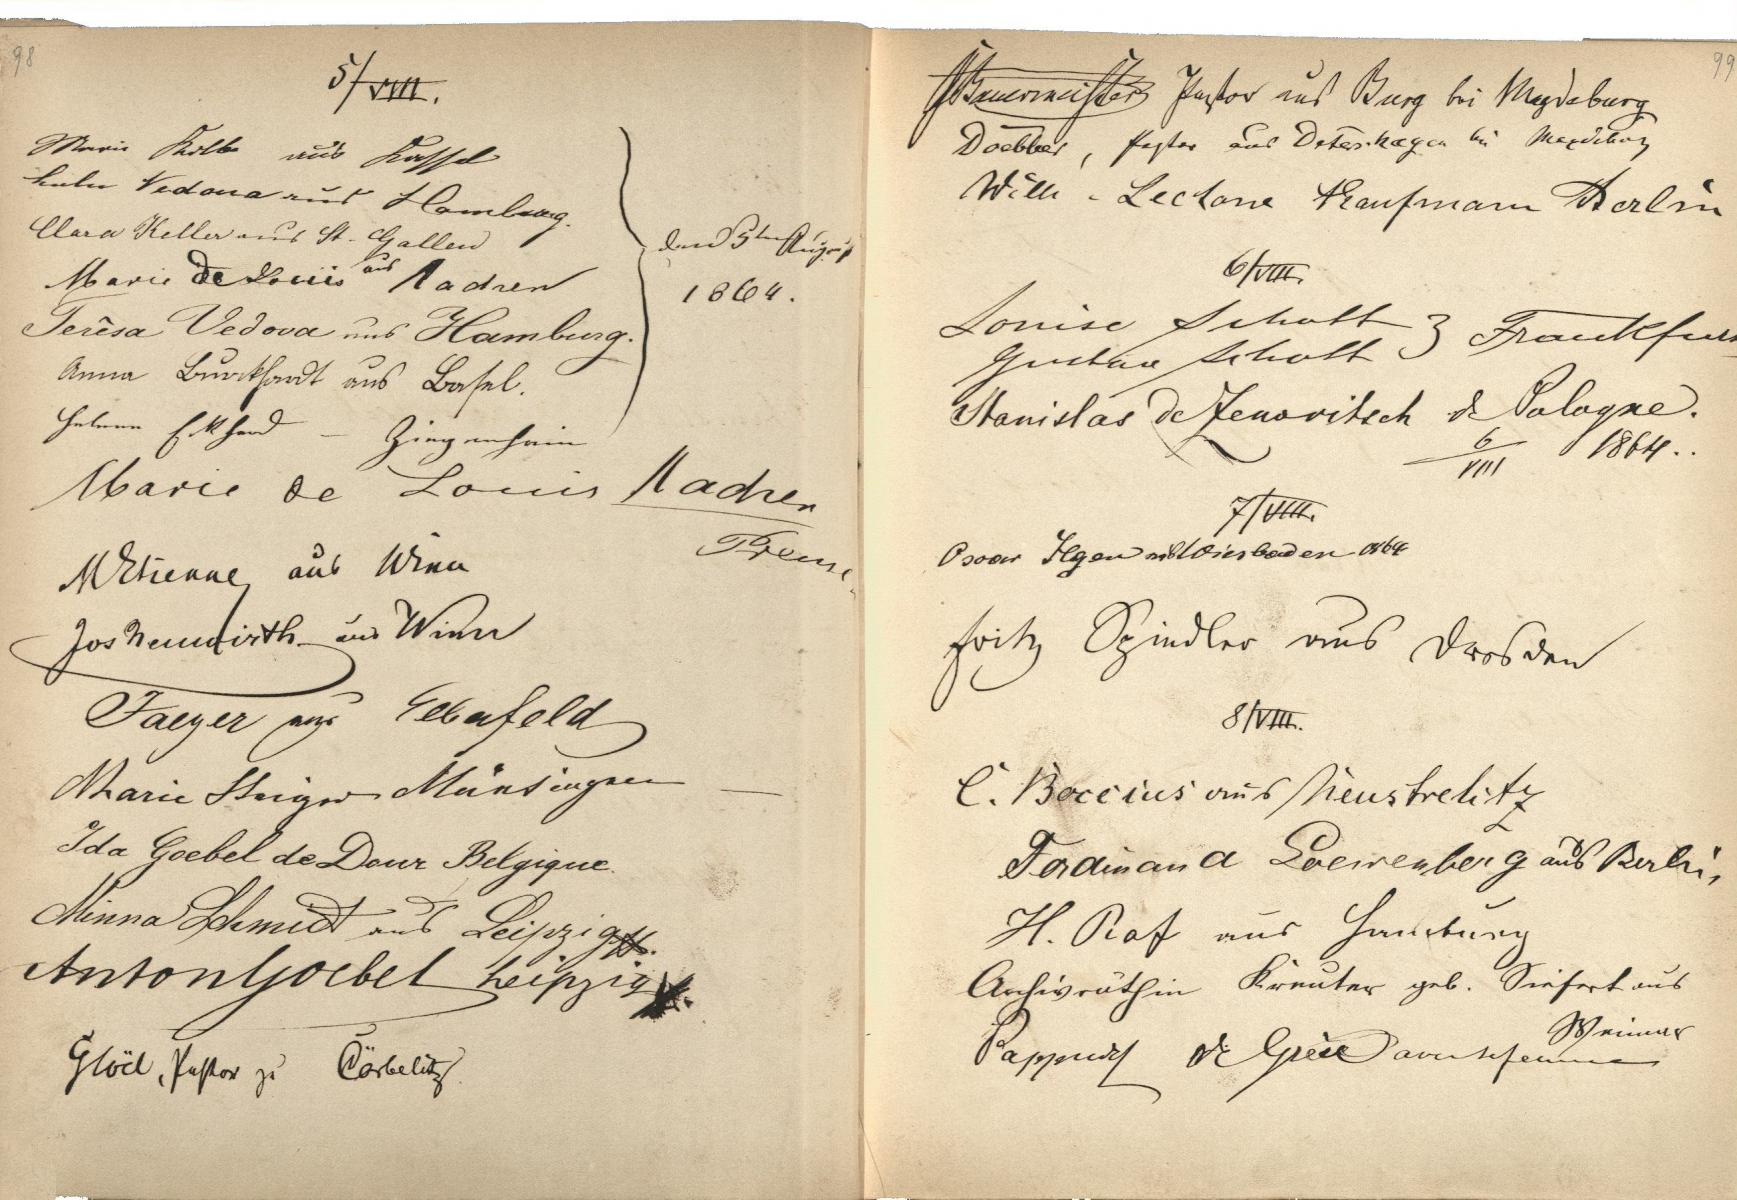 98
5/VIII.
Marie Kolb aus Kassel
Vedova aus Hamburg.
Clara Keller aus St. Gallen
Marie de Louis aus Aachen
den 5ten August
1864.
Teresa Vedova aus Hamburg.
Anna Burckhardt aus Basel.
Helene Eckhard – Ziegenhain
Marie de Louis Aachen
M Etienne aus Wien
Jos Neuwirth aus Wien
Jaeger aus Elberfeld
Marie Steiger Münsingen –
Ida Goebel de Dour Belgique.
Minna Schmidt aus Leipzig
Anton Goebel Leipzig
Pastor zu Cörbelitz
99
Bauermeister Pastor aus Burg bei Magdeburg
Doebber, Pastor aus Detershagen bei Magdeburg
Willi Kaufmann Berlin
6/VIII.
Louise Schott
Gustav Schott
Frankfurt
Stanislas de Zenovitsch de Pologne.
6/VIII 1864..
7/VIII.
Oscar Ilgen aus Wiesbaden 1864
Fritz Spindler aus Dresden
8/VIII.
C. Boccius aus Neustrelitz
Ferdinand Loewenberg aus Berlin,
H. Raf aus Hamburg
Archivräthin Kräuter geb. Seifert aus
Weimar
de Grèce